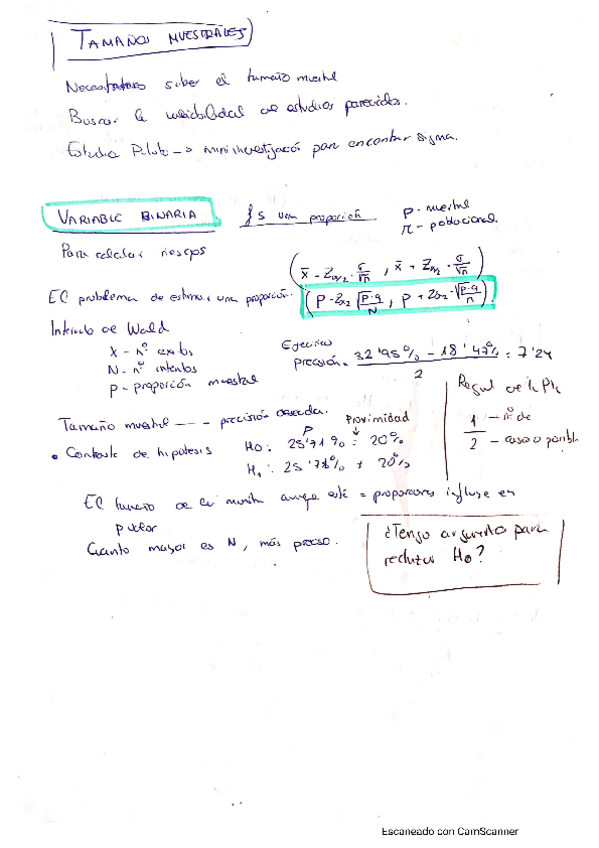 TAMAÑOS MUESTRALES
Necesitamos saber el tamaño muestral
Buscar la variabilidad de estudios parecidos.
Estudio Piloto → mini investigació para encontrar sigma.
VARIABLE BINARIA
Es una proporción
p - muestral
π - poblacional
Para calcular riesgos
(x̄ - Zα/2 · σ/√n , x̄ + Zα/2 · σ/√n)
El problema de estimar una proporción.
(p - Zα/2 √p·q/N , p + Zα/2 · √p·q/n)
Intervalo de Wald
X - nº exitos
N - nº intentos
P - proporción muestral
Ejercicio
precisión = 32'95% - 18'47% / 2 = 7'24
Regla de la Place
1/2 - nº de
- casos posibles
Tamaño muestral --- precisión deseada.
P Proximidad
• Contraste de hipótesis
H0: 25'71% = 20%
H1: 25'71% ≠ 20%
El tamaño de la muestra aunque esté = proporciones influye en
p valor
Cuanto mayor es N, más preciso.
¿Tengo argumento para
rechazar H0?
Escaneado con CamScanner